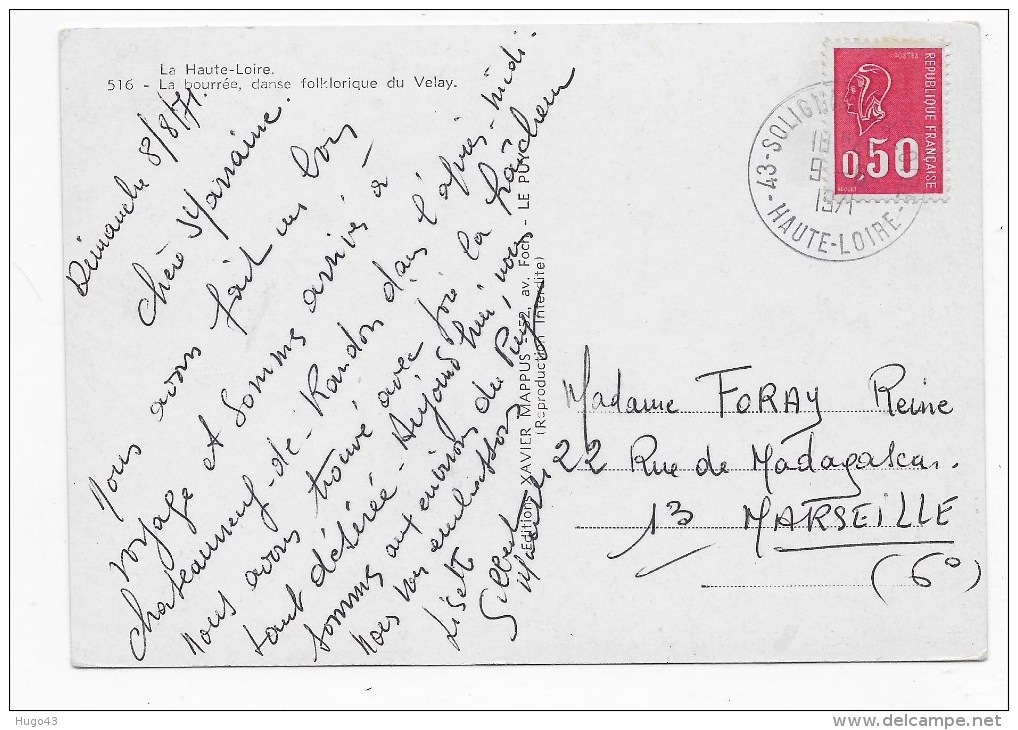 La Haute-Loire.
516 - La bourrée, danse folklorique du Velay.
Dimanche 8/8/71.
chère Marraine.
Nous avons fait un bon
voyage et sommes arrivés à
Chateauneuf-de-Randon dans l'après-midi.
nous avons trouvé avec joie la fraîcheur
tant désirée - Aujourd'hui, nous
sommes aux environs du Puy,
nous vous embrassons
Lisette
Gilbert
Editions XAVIER MAPPUS - 52, av. Foch - LE PUY
(Reproduction Interdite)
POSTES
REPUBLIQUE FRANÇAISE
0,50
43-SOLIGN
18
9
8
1971
-HAUTE-LOIRE-
Madame FORAY Reine
22 Rue de Madagascar.
13 MARSEILLE
(6°)
Hugo43
www.delcampe.net